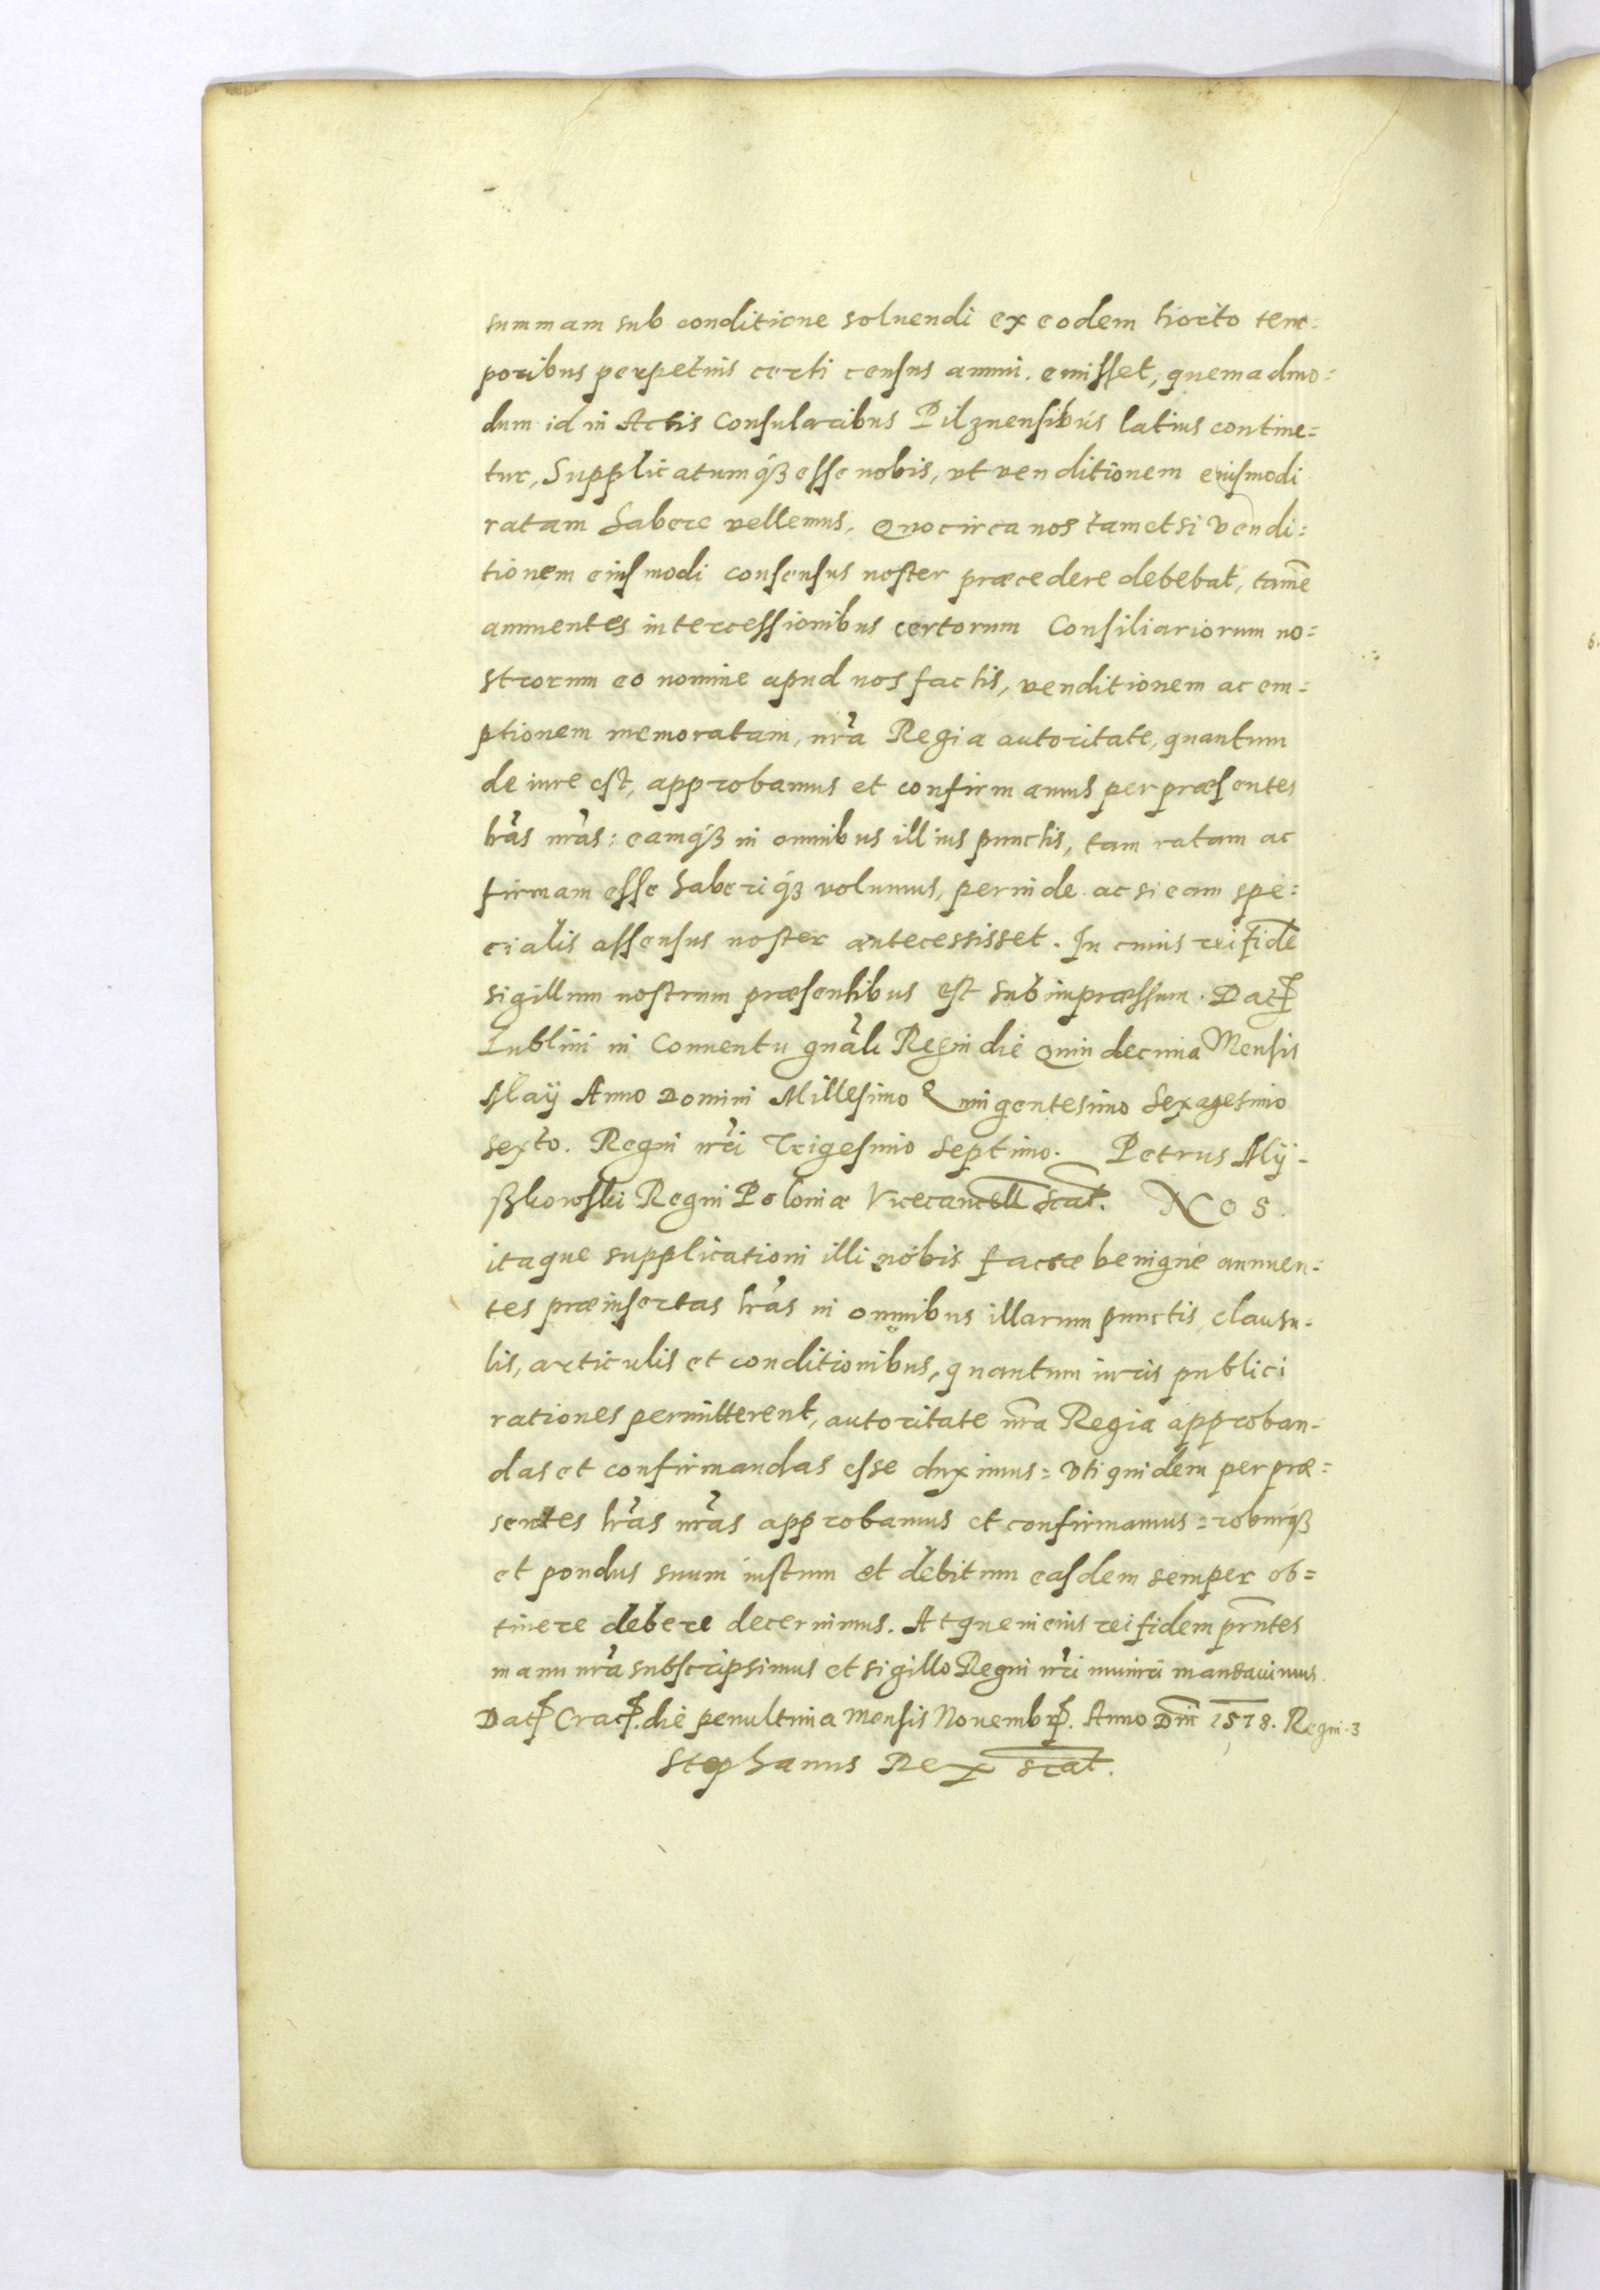 summam sub conditione soluendi ex eodem horto tem=
poribus perpetuis certi census annui. emisset, quemadmo=
dum id in Actis Consularibus Pilznensibus latius contine=
tur, Supplicatumq́ꝫ esse nobis, vt venditionem eiusmodi
ratam habere vellemus. Quocirca nos tametsi vendi=
tionem eiusmodi consensus noster præcedere debebat, tamē
annuentes intercessionibus certorum Consiliariorum no=
strorum eo nomine apud nos factis, venditionem ac em=
ptionem memoratam, nr̃a Regia autoritate, quantum
de iure est, approbamus et confirmamus per præsentes
lr̃as nr̃as: eamq́ꝫ in omnibus illius punctis, tam ratam ac
firmam esse haberiq́ꝫ volumus, perinde ac si eam spe=
cialis assensus noster antecessisset. In cuius rei fidē
sigillum nostrum præsentibus est subimpræssum. Datꝭ
Lublini in Conuentu gnãli Regni die Quindecima Mensis
Maij Anno Domini Millesimo Quingentesimo Sexagesimo
sexto. Regni nr̃i Trigesimo Septimo. Petrus Mÿ-
ßkowski Regni Poloniæ Vicecancell̃ scat̃. NOS.
itaque supplicationi illi nobis factæ benignè annuen=
tes præinsertas lr̃as in omnibus illarum punctis, clausu-
lis, articulis et conditionibus, quantum iuris publici
rationes permitterent, autoritate nr̃a Regia approban-
das et confirmandas esse duximus= vti quidem per præ=
sentes lr̃as nr̃as approbamus et confirmamus= roburq́ꝫ
et pondus suum iustum et debitum easdem semper ob=
tinere debere decernimus. Atque in eius rei fidem prñtes
manu nr̃a subscripsimus et sigillo Regni nr̃i muniri mandauimus.
Datꝭ Cracꝭ. die penultima Mensis Nouembrꝭ. Anno Dñi 1578. Regni. 3
Stephanus Rex scat̃.